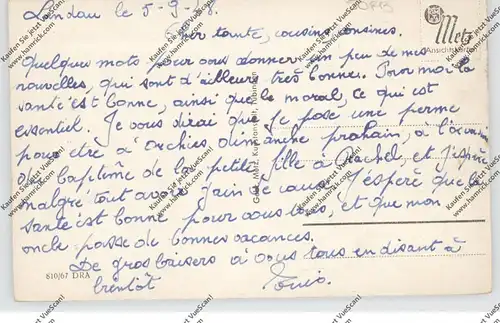 Landau le 5-9-68.
Cher tante, cousins, cousines.
Quelques mots pour vous donner un peu de mes
nouvelles, qui sont d'ailleurs très bonne. Pour moi la
santé est bonne, ainsi que le moral, ce qui est
essentiel. Je vous dirai que je pose une perme
pour être à Orchies, dimanche prochain, à l'occasion
du baptême de la petite fille à Rachel, et j'espère
malgré tout avoir gain de cause. J'espère que la
santé est bonne pour vous tous, et que mon
oncle passe de bonnes vacances.
De gros baisers à vous tous en disant à
bientôt
Metz
Ansichtskarten
Gebr. Metz, Tübingen
810/67 DRA
Kaufen Sie jetzt VueScan!
www.hamrick.com